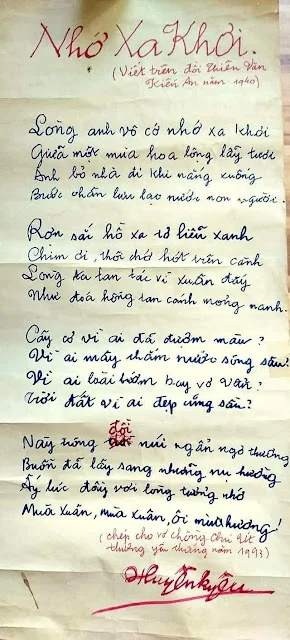 Nhớ Xa Khơi.
(Viết trên đồi Thiên Văn
Kiến An năm 1940)
Lòng anh vô cớ nhớ xa khơi
Giữa một mùa hoa lộng lẫy tươi
Anh bỏ nhà đi khi nắng xuống
Bước chân lưu lạc nước non người.
Rợn sắc hồ xa tơ liễu xanh
Chim ơi, thôi chớ hót trên cành
Lòng ta tan tác vì xuân đấy
Như đoá hồng tan cánh mỏng manh.
Cây cỏ vì ai đã đượm màu?
Vì ai mây thắm nước sông sâu?
Vì ai loài bướm bay vơ vẩn?
Trời đất vì ai đẹp cũng sầu?
Nay trông đồi núi ngẩn ngơ thường
Buồn đã lây sang những nụ hường
Ấy lúc đầy vơi lòng tưởng nhớ
Mùa xuân, mùa xuân, ôi mùi hương!
(chép cho vợ chồng Chu
thương yêu tháng năm 1993)
Huyền Kiêu